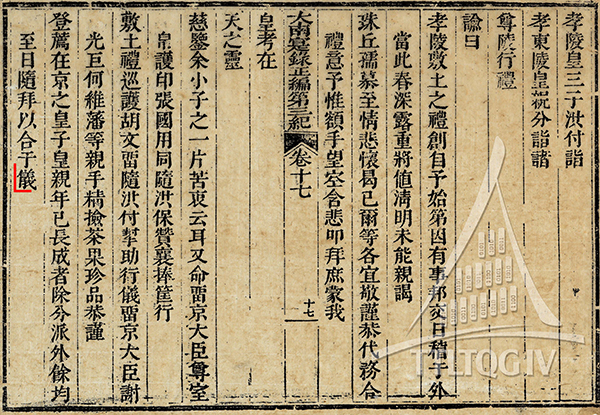 孝陵皇三子洪付詣
孝東陵皇親分詣諸
尊陵行禮
諭曰
孝陵敷土之禮創自予始第因有事邦交日稽于外
當此春深露重將值淸明未能親謁
珠丘孺慕至情悲懷曷已爾等各宜敬謹恭代務合
禮意予惟額手望空含悲叩拜庶蒙我
大南寔錄正編第三紀 卷十七 十七
皇考在
天之靈
慈鑒余小子之一片苦衷云耳又命畱京大臣尊室
帛護印張國用同隨洪保贊襄捧筐行
敷土禮巡護胡文畱隨洪付幇助行儀畱京大臣謝
光巨何維藩等親手精撿茶果珍品恭謹
登薦在京之皇子皇親年已長成者除分派外餘均
至日隨拜以合于儀
TTLTQGIV